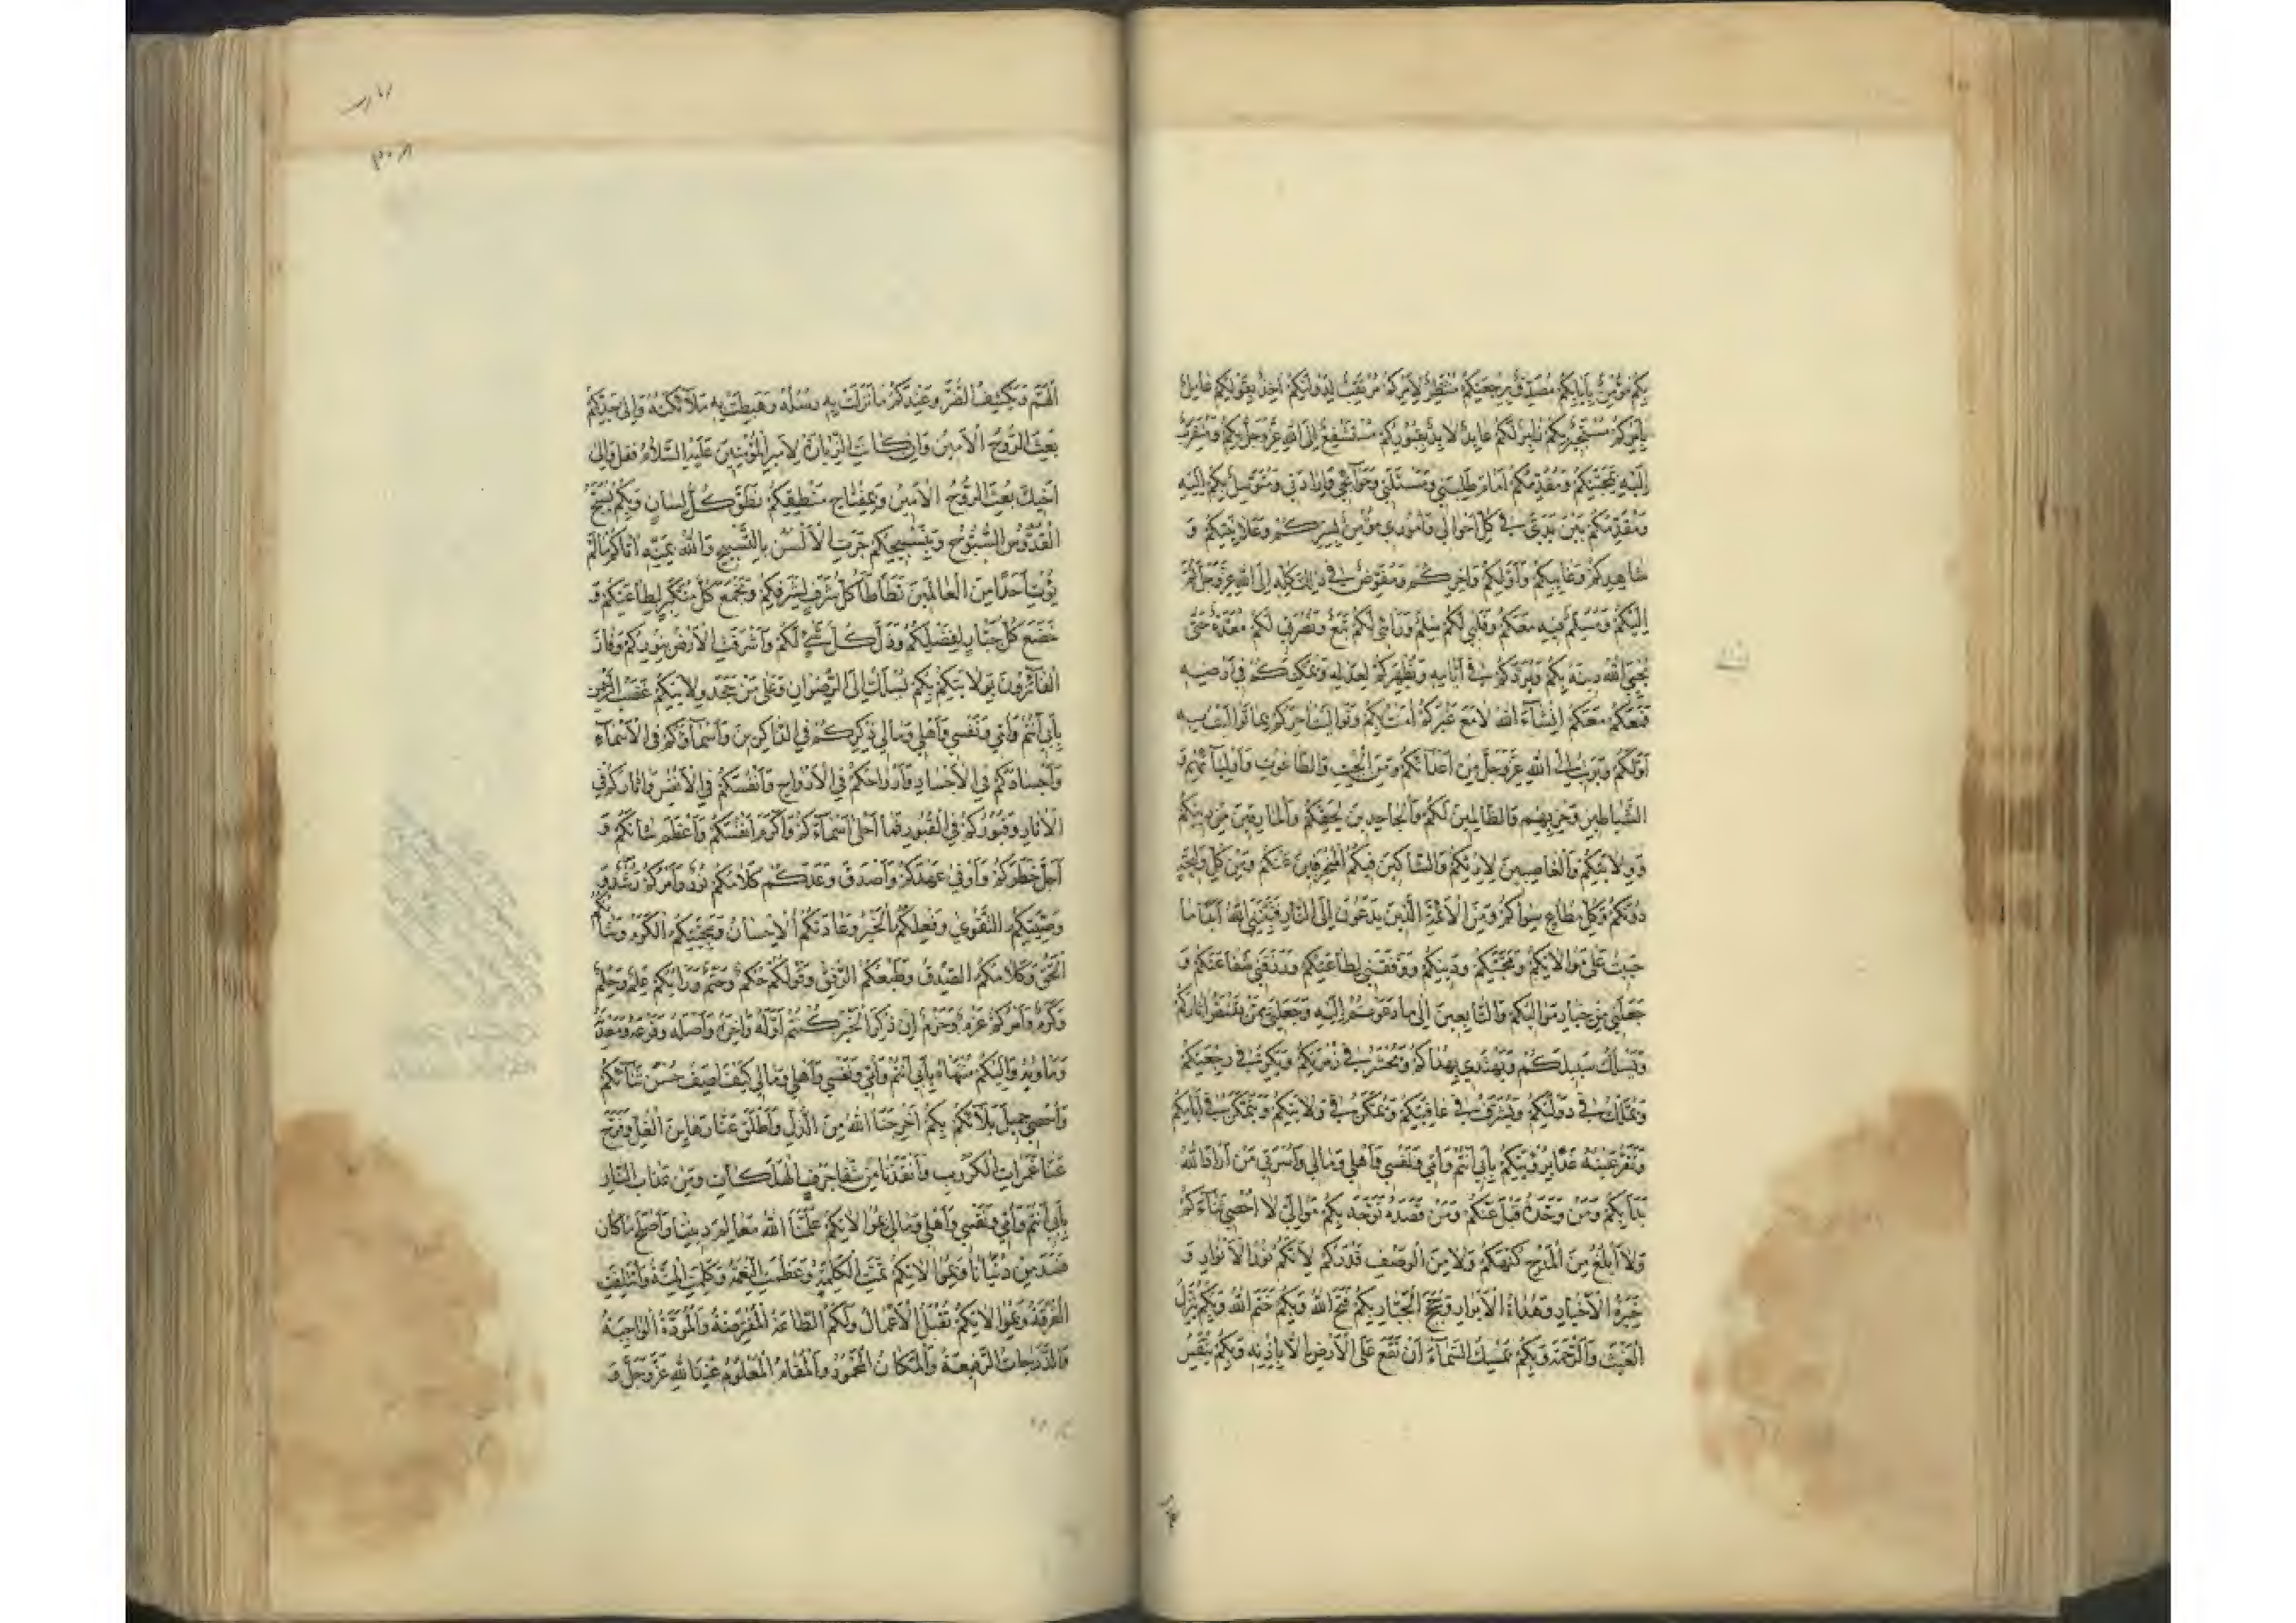 بِكُمْ مُؤْمِنٌ بِإِيَابِكُمْ مُصَدِّقٌ بِرَجْعَتِكُمْ مُنْتَظِرٌ لِأَمْرِكُمْ مُرْتَقِبٌ لِدَوْلَتِكُمْ آخِذٌ بِقَوْلِكُمْ عَامِلٌ
بِأَمْرِكُمْ مُسْتَجِيرٌ بِكُمْ زَائِرٌ لَكُمْ عَائِذٌ لَائِذٌ بِقُبُورِكُمْ مُسْتَشْفِعٌ إِلَى اللهِ عَزَّوَجَلَّ بِكُمْ وَمُتَقَرِّبٌ
إِلَيْهِ بِمَحَبَّتِكُمْ وَمُقَدِّمُكُمْ أَمَامَ طَلِبَتِي وَمَسْئَلَتِي وَحَوَائِجِي وَإِرَادَتِي وَمُتَوَسِّلٌ بِكُمْ إِلَيْهِ
وَمُقَدِّمُكُمْ بَيْنَ يَدَيَّ فِي كُلِّ أَحْوَالِي وَأُمُورِي مُؤْمِنٌ بِسِرِّكُمْ وَعَلَانِيَتِكُمْ وَ
شَاهِدِكُمْ وَغَائِبِكُمْ وَأَوَّلِكُمْ وَآخِرِكُمْ وَمُفَوِّضٌ فِي ذٰلِكَ كُلِّهِ إِلَى اللهِ عَزَّوَجَلَّ ثُمَّ
إِلَيْكُمْ وَمُسَلِّمٌ فِيهِ مَعَكُمْ وَقَلْبِي لَكُمْ سِلْمٌ وَرَأْيِي لَكُمْ تَبَعٌ وَنُصْرَتِي لَكُمْ مُعَدَّةٌ حَتَّى
يُحْيِيَ اللهُ دِينَهُ بِكُمْ وَيَرُدَّكُمْ فِي أَيَّامِهِ وَيُظْهِرَكُمْ لِعَدْلِهِ وَيُمَكِّنَكُمْ فِي أَرْضِهِ
فَمَعَكُمْ مَعَكُمْ إِنْشَاءَ اللهُ لَا مَعَ غَيْرِكُمْ آمَنْتُ بِكُمْ وَتَوَالَيْتُ آخِرَكُمْ بِمَا تَوَالَيْتُ بِهِ
أَوَّلَكُمْ وَبَرِئْتُ إِلَى اللهِ عَزَّوَجَلَّ مِنْ أَعْدَائِكُمْ وَمِنَ الْجِبْتِ وَالطَّاغُوتِ وَأَوْلِيَائِهِمْ وَ
الشَّيَاطِينِ وَحِزْبِهِمْ وَالظَّالِمِينَ لَكُمْ وَالْجَاحِدِينَ لِحَقِّكُمْ وَالْمَارِقِينَ مِنْ دِينِكُمْ
وَوِلَايَتِكُمْ وَالْغَاصِبِينَ لِإِرْثِكُمْ وَالشَّاكِّينَ فِيكُمُ الْمُنْحَرِفِينَ عَنْكُمْ وَمِنْ كُلِّ وَلِيجَةٍ
دُونَكُمْ وَكُلِّ مُطَاعٍ سِوَاكُمْ وَمِنَ الْأَئِمَّةِ الَّذِينَ يَدْعُونَ إِلَى النَّارِ فَثَبَّتَنِي اللهُ أَبَدًا مَا
حَيِيتُ عَلَى مُوَالَاتِكُمْ وَمَحَبَّتِكُمْ وَدِينِكُمْ وَوَفَّقَنِي لِطَاعَتِكُمْ وَرَزَقَنِي شَفَاعَتَكُمْ وَ
جَعَلَنِي مِنْ خِيَارِ مَوَالِيكُمْ وَالتَّابِعِينَ إِلَى مَا دَعَوْتُمْ إِلَيْهِ وَجَعَلَنِي مِمَّنْ يَقْتَصُّ آثَارَكُمْ
وَيَسْلُكُ سَبِيلَكُمْ وَيَهْتَدِي بِهُدَاكُمْ وَيُحْشَرُ فِي زُمْرَتِكُمْ وَيَكُرُّ فِي رَجْعَتِكُمْ
وَيُمَلَّكُ فِي دَوْلَتِكُمْ وَيُشَرَّفُ فِي عَافِيَتِكُمْ وَيُمَكَّنُ فِي وِلَايَتِكُمْ وَيَتَمَكَّنُ فِي أَيَّامِكُمْ
وَتَقَرُّ عَيْنُهُ غَدًا بِرُؤْيَتِكُمْ بِأَبِي أَنْتُمْ وَأُمِّي وَنَفْسِي وَأَهْلِي وَمَالِي وَأُسْرَتِي مَنْ أَرَادَ اللهَ
بَدَأَ بِكُمْ وَمَنْ وَحَّدَهُ قَبِلَ عَنْكُمْ وَمَنْ قَصَدَهُ تَوَجَّهَ بِكُمْ مَوَالِيَّ لَا أُحْصِي ثَنَاءَكُمْ
وَلَا أَبْلُغُ مِنَ الْمَدْحِ كُنْهَكُمْ وَلَا مِنَ الْوَصْفِ قَدْرَكُمْ لِأَنَّكُمْ نُورُ الْأَنْوَارِ وَ
خِيَرَةُ الْأَخْيَارِ وَهُدَاةُ الْأَبْرَارِ وَحُجَجُ الْجَبَّارِ بِكُمْ فَتَحَ اللهُ وَبِكُمْ خَتَمَ اللهُ وَبِكُمْ يُنَزِّلُ
الْغَيْثَ وَالرَّحْمَةَ وَبِكُمْ يُمْسِكُ السَّمَاءَ أَنْ تَقَعَ عَلَى الْأَرْضِ إِلَّا بِإِذْنِهِ وَبِكُمْ يُنَفِّسُ
الْهَمَّ وَيَكْشِفُ الضُّرَّ وَعِنْدَكُمْ مَا نَزَلَتْ بِهِ رُسُلُهُ وَهَبَطَتْ بِهِ مَلَائِكَتُهُ وَإِلَى جَدِّكُمْ
بُعِثَ الرُّوحُ الْأَمِينُ وَإِنْ كَانَتِ الزِّيَارَةُ لِأَمِيرِ الْمُؤْمِنِينَ عَلَيْهِ السَّلَامُ فَقُلْ وَإِلَى
أَخِيكَ بُعِثَ الرُّوحُ الْأَمِينُ وَبِمِفْتَاحِ مَنْطِقِكُمْ نَطَقَ كُلُّ لِسَانٍ وَبِكُمْ يُسَبَّحُ
الْقُدُّوسُ السُّبُّوحُ وَبِتَسْبِيحِكُمْ جَرَتِ الْأَلْسُنُ بِالتَّسْبِيحِ وَاللهُ بِمَنِّهِ آتَاكُمْ مَا لَمْ
يُؤْتِ أَحَدًا مِنَ الْعَالَمِينَ طَأْطَأَ كُلُّ شَرِيفٍ لِشَرَفِكُمْ وَبَخَعَ كُلُّ مُتَكَبِّرٍ لِطَاعَتِكُمْ وَ
خَضَعَ كُلُّ جَبَّارٍ لِفَضْلِكُمْ وَذَلَّ كُلُّ شَيْءٍ لَكُمْ وَأَشْرَقَتِ الْأَرْضُ بِنُورِكُمْ وَفَازَ
الْفَائِزُونَ بِوِلَايَتِكُمْ بِكُمْ يُسْلَكُ إِلَى الرِّضْوَانِ وَعَلَى مَنْ جَحَدَ وِلَايَتَكُمْ غَضَبُ الرَّحْمٰنِ
بِأَبِي أَنْتُمْ وَأُمِّي وَنَفْسِي وَأَهْلِي وَمَالِي ذِكْرُكُمْ فِي الذَّاكِرِينَ وَأَسْمَاؤُكُمْ فِي الْأَسْمَاءِ
وَأَجْسَادُكُمْ فِي الْأَجْسَادِ وَأَرْوَاحُكُمْ فِي الْأَرْوَاحِ وَأَنْفُسُكُمْ فِي الْأَنْفُسِ وَآثَارُكُمْ فِي
الْآثَارِ وَقُبُورُكُمْ فِي الْقُبُورِ فَمَا أَحْلَى أَسْمَاءَكُمْ وَأَكْرَمَ أَنْفُسَكُمْ وَأَعْظَمَ شَأْنَكُمْ وَ
أَجَلَّ خَطَرَكُمْ وَأَوْفَى عَهْدَكُمْ وَأَصْدَقَ وَعْدَكُمْ كَلَامُكُمْ نُورٌ وَأَمْرُكُمْ رُشْدٌ وَ
وَصِيَّتُكُمُ التَّقْوَى وَفِعْلُكُمُ الْخَيْرُ وَعَادَتُكُمُ الْإِحْسَانُ وَسَجِيَّتُكُمُ الْكَرَمُ وَشَأْنُكُمُ
الْحَقُّ وَكَلَامُكُمُ الصِّدْقُ وَطَبْعُكُمُ الرِّفْقُ وَقَوْلُكُمْ حُكْمٌ وَحَتْمٌ وَرَأْيُكُمْ عِلْمٌ وَحِلْمٌ
وَكَرَمٌ وَأَمْرُكُمْ عَزْمٌ وَحَزْمٌ إِنْ ذُكِرَ الْخَيْرُ كُنْتُمْ أَوَّلَهُ وَآخِرَهُ وَأَصْلَهُ وَفَرْعَهُ وَمَعْدِنَهُ
وَمَأْوِيَهُ وَإِلَيْكُمْ مُنْتَهَاهُ بِأَبِي أَنْتُمْ وَأُمِّي وَنَفْسِي وَأَهْلِي وَمَالِي كَيْفَ أَصِفُ حُسْنَ ثَنَائِكُمْ
وَأُحْصِي جَمِيلَ بَلَائِكُمْ بِكُمْ أَخْرَجَنَا اللهُ مِنَ الذُّلِّ وَأَطْلَقَ عَنَّا رَهَائِنَ الْغُلِّ وَفَرَّجَ
عَنَّا غَمَرَاتِ الْكُرُوبِ وَأَنْقَذَنَا مِنْ شَفَا جُرُفِ الْهَلَكَاتِ وَمِنْ عَذَابِ النَّارِ
بِأَبِي أَنْتُمْ وَأُمِّي وَنَفْسِي وَأَهْلِي وَمَالِي بِمُوَالَاتِكُمْ عَلَّمَنَا اللهُ مَعَالِمَ دِينِنَا وَأَصْلَحَ مَا كَانَ
فَسَدَ مِنْ دُنْيَانَا وَبِمُوَالَاتِكُمْ تَمَّتِ الْكَلِمَةُ وَعَظُمَتِ النِّعْمَةُ وَكَمُلَتِ الْمِنَّةُ وَائْتَلَفَتِ
الْفُرْقَةُ وَبِمُوَالَاتِكُمْ تُقْبَلُ الْأَعْمَالُ وَلَكُمُ الطَّاعَةُ الْمُفْتَرَضَةُ وَالْمَوَدَّةُ الْوَاجِبَةُ
وَالدَّرَجَاتُ الرَّفِيعَةُ وَالْمَكَانُ الْمَحْمُودُ وَالْمَقَامُ الْمَعْلُومُ عِنْدَ اللهِ عَزَّوَجَلَّ وَ